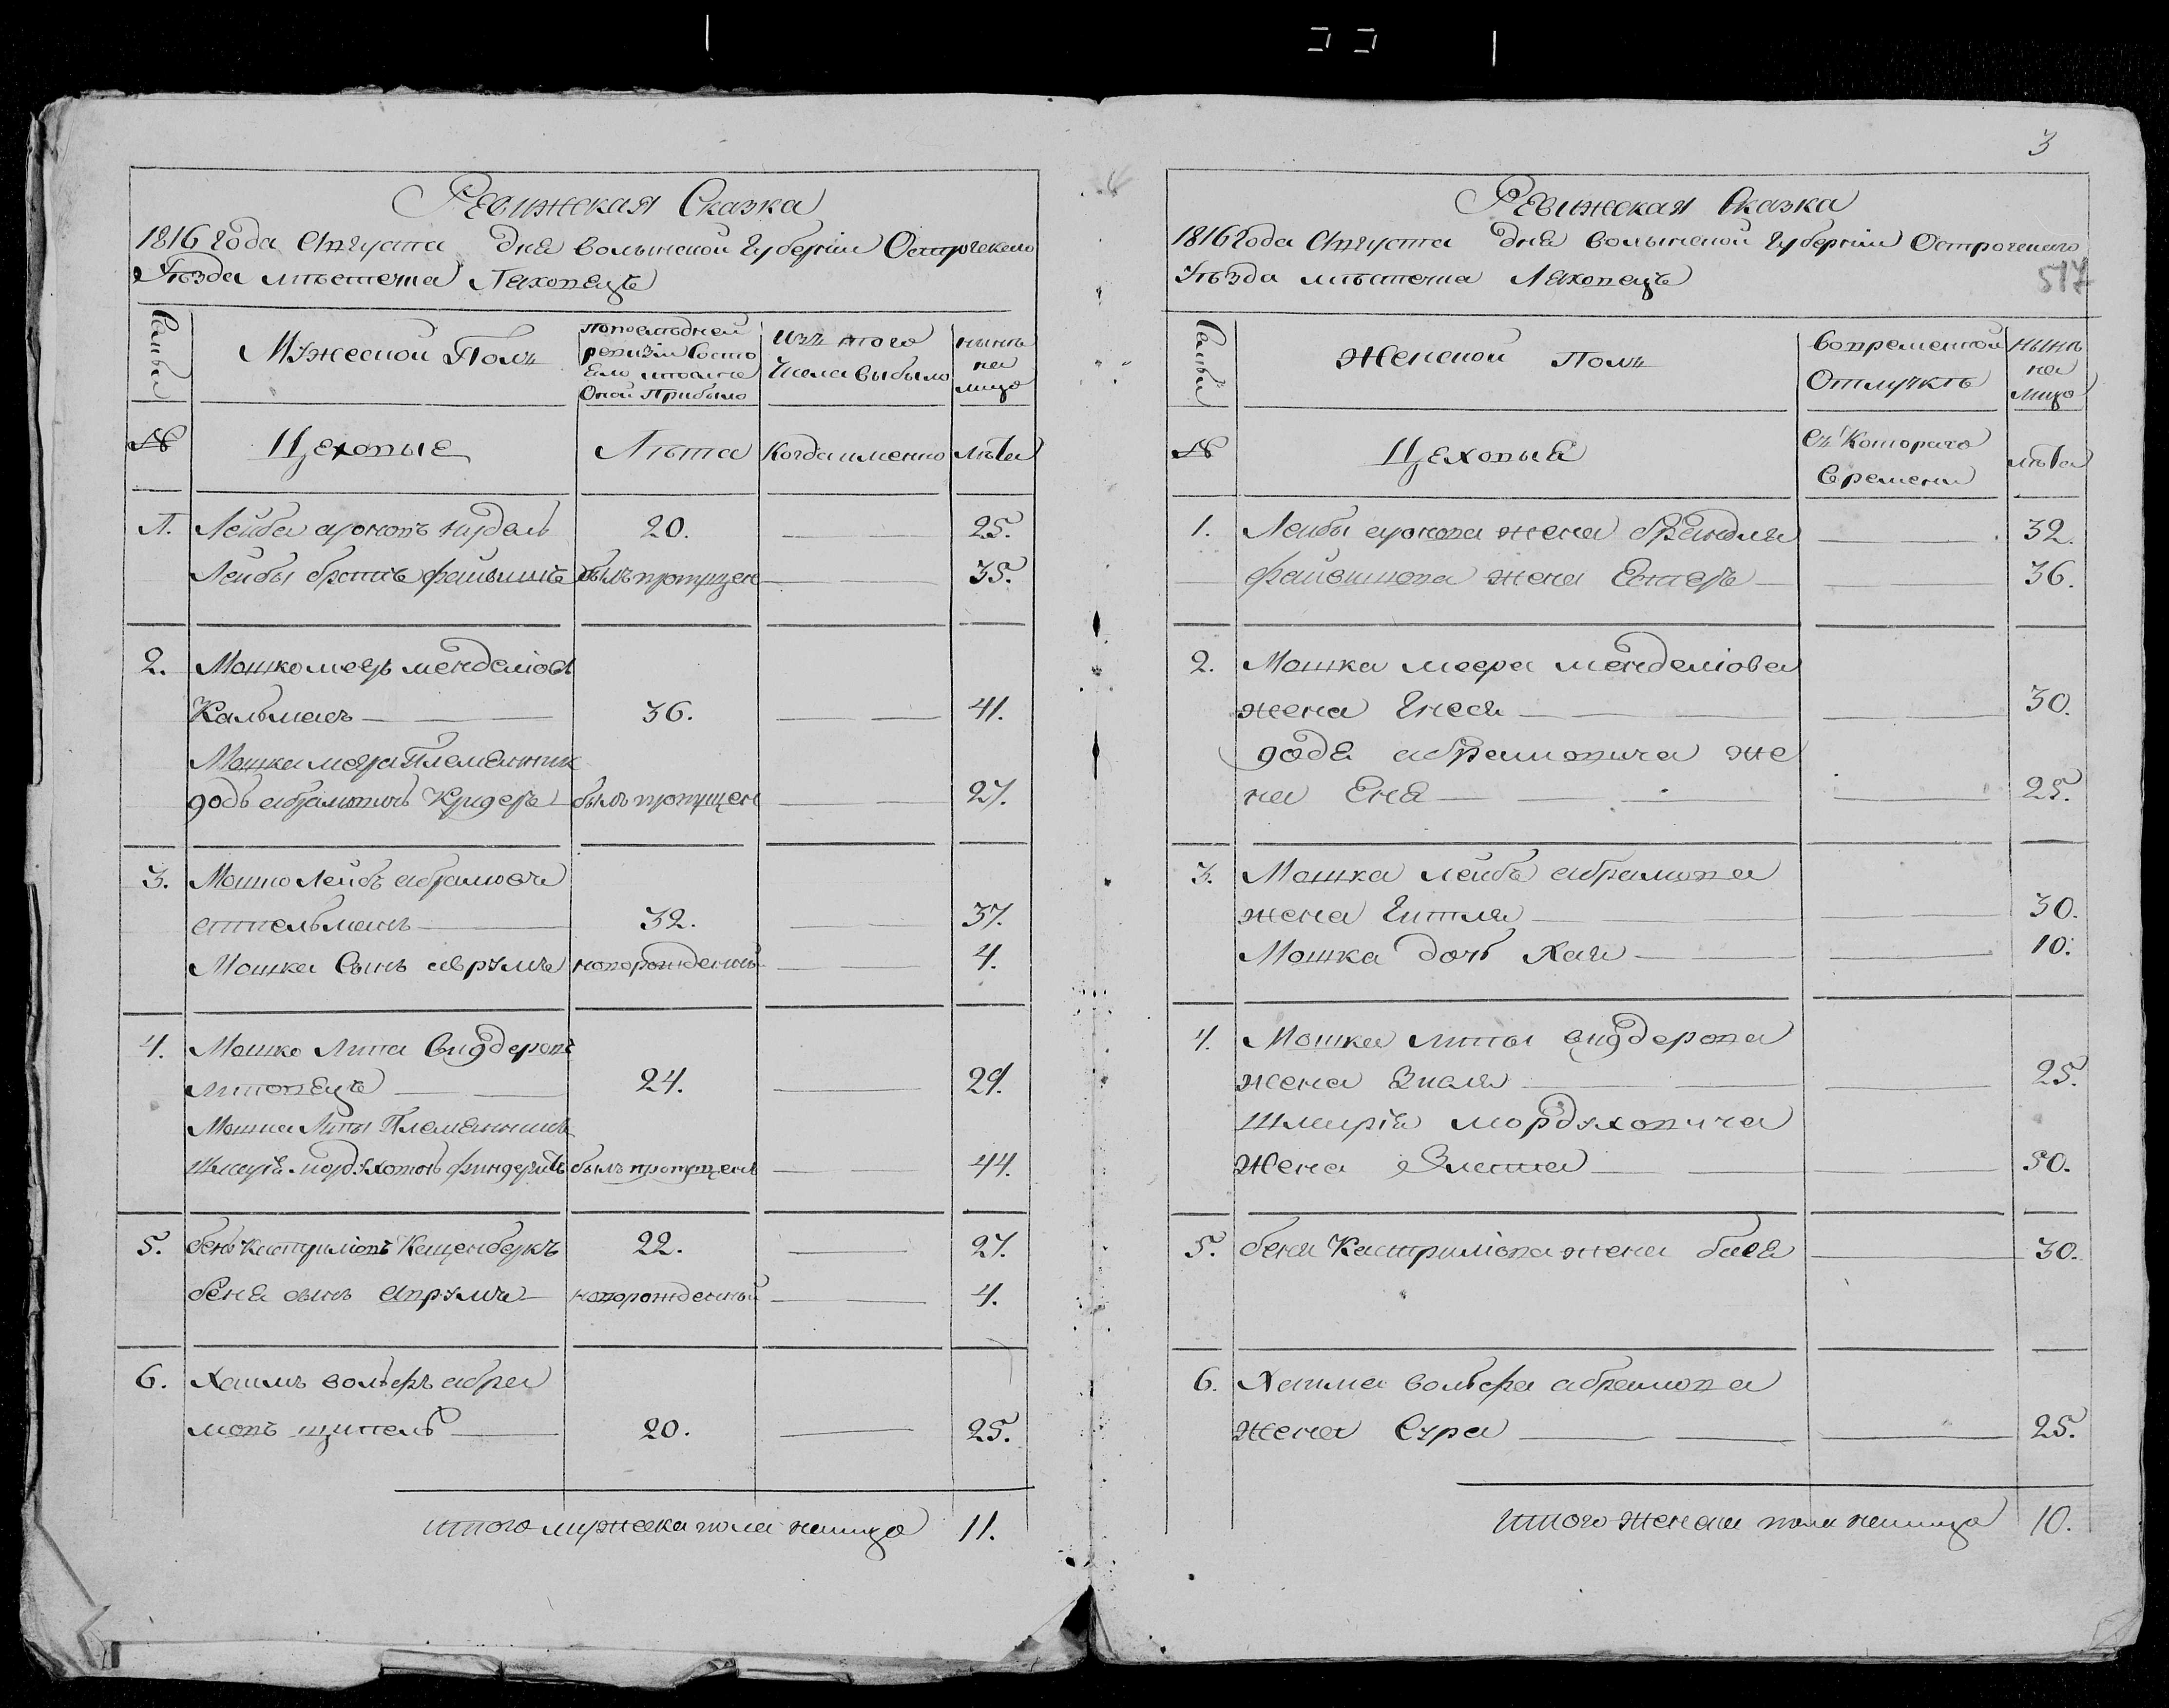 Ревижская Сказка
1816 года Августа дня волынской Губернiи Острогскаго
Уѣзда мѣстечка Ляховецъ
Семьи
Мужеской Полъ
попослѣдней
ревизiи Состо
яло ипослѣ
Оной Прибыло
изъ того
Числа выбыло
нынѣ
на
лицо
№
Цеховые
Лѣта
Когда именно
лѣта
1.
Лейба ароновъ нудель
20.
25.
Лейбы братъ файвишъ
былъ пропущен
35.
2.
Мошко меер менделiов
Кальманъ
36.
41.
Мошка меера Племянник
былъ пропущен
27.
3.
Мошко Лейбъ абрамович
32.
37.
Мошка Сынъ аврумъ
новорожденный
4.
4.
Мошко Липа
липовецъ
24.
29.
Мошка Липы Племянникъ
Шмерiя мордуховичъ
былъ пропущенъ
44.
5.
22.
27.
беня сынъ аврумъ
новорожденный
4.
6.
Хаимъ вольфъ абра
мовъ
20.
25.
итого мужеска пола налицо 11.
3
Ревижская Сказка
1816 Года Августа дня волынской Губернiи Острогскаго
Уѣзда мѣстечка Ляховецъ
517
Семьи
Женской Полъ
вовременной
Отлучкѣ
нынѣ
на
лицо
№
Цеховыя
Съ Котораго
Времени
лѣта
1.
Лейбы аронова жена брейндля
32.
файвишова жена Естеръ
36.
2.
Мошка меера менделiова
жена Гнеся
30.
абрамовича же
на Ене
25.
3.
Мошка лейбъ абрамова
жена Гитля
30.
Мошка дочь Хая
10.
4.
Мошка липы
жена
25.
Шмерiя мордуховича
Жена Злата
50.
5.
беня Кастрилiова жена бася
30.
6.
Хаима вольфа абрамова
жена Сура
25.
Итого женска пола налицо 10.